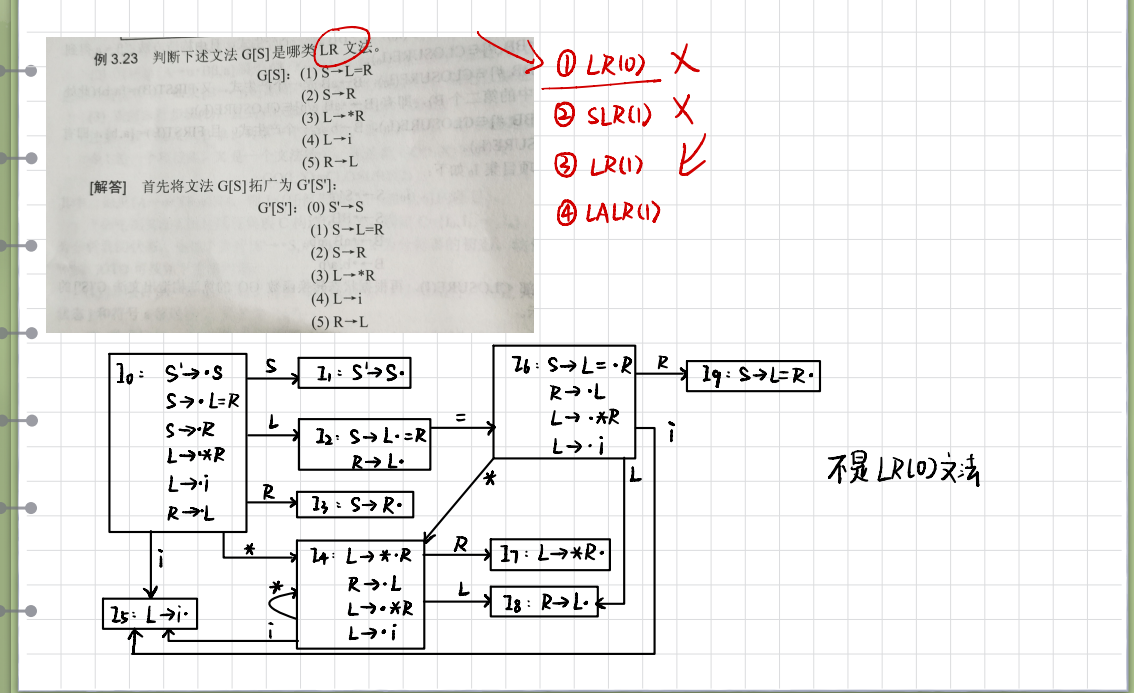 例 3.23 判断下述文法 G[S]是哪类 LR 文法。
G[S]: (1) S→L=R
(2) S→R
(3) L→*R
(4) L→i
(5) R→L
[解答] 首先将文法 G[S]拓广为 G'[S']:
G'[S']: (0) S'→S
(1) S→L=R
(2) S→R
(3) L→*R
(4) L→i
(5) R→L
① LR(0) ×
② SLR(1) ×
③ LR(1)
④ LALR(1)
I0: S'→·S
S→·L=R
S→·R
L→·*R
L→·i
R→·L
S
I1: S'→S·
L
I2: S→L·=R
R→L·
=
R
I3: S→R·
I6: S→L=·R
R→·L
L→·*R
L→·i
R
I9: S→L=R·
i
*
L
不是 LR(0) 文法
i
*
I4: L→*·R
R→·L
L→·*R
L→·i
*
i
R
I7: L→*R·
L
I8: R→L·
I5: L→i·